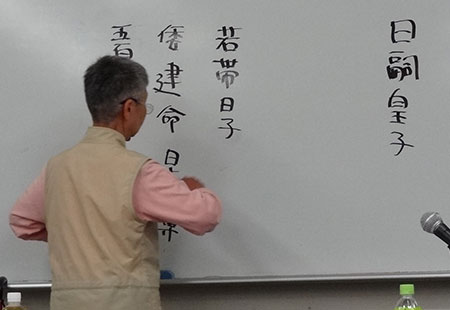 日嗣皇子
若帯日子
倭建命
五百